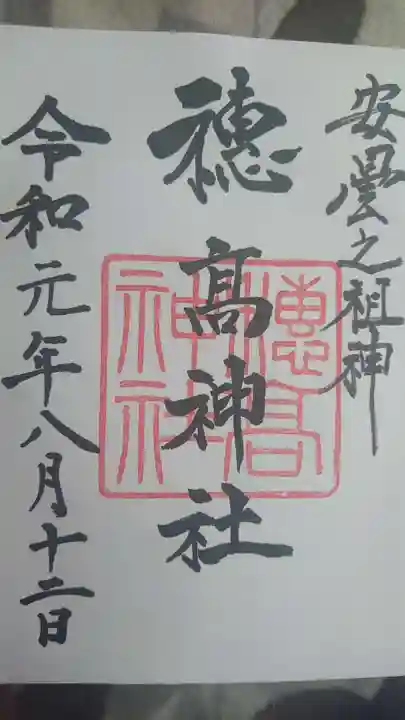 安曇之祖神
穂髙神社
穂高
神社
令和元年八月十二日